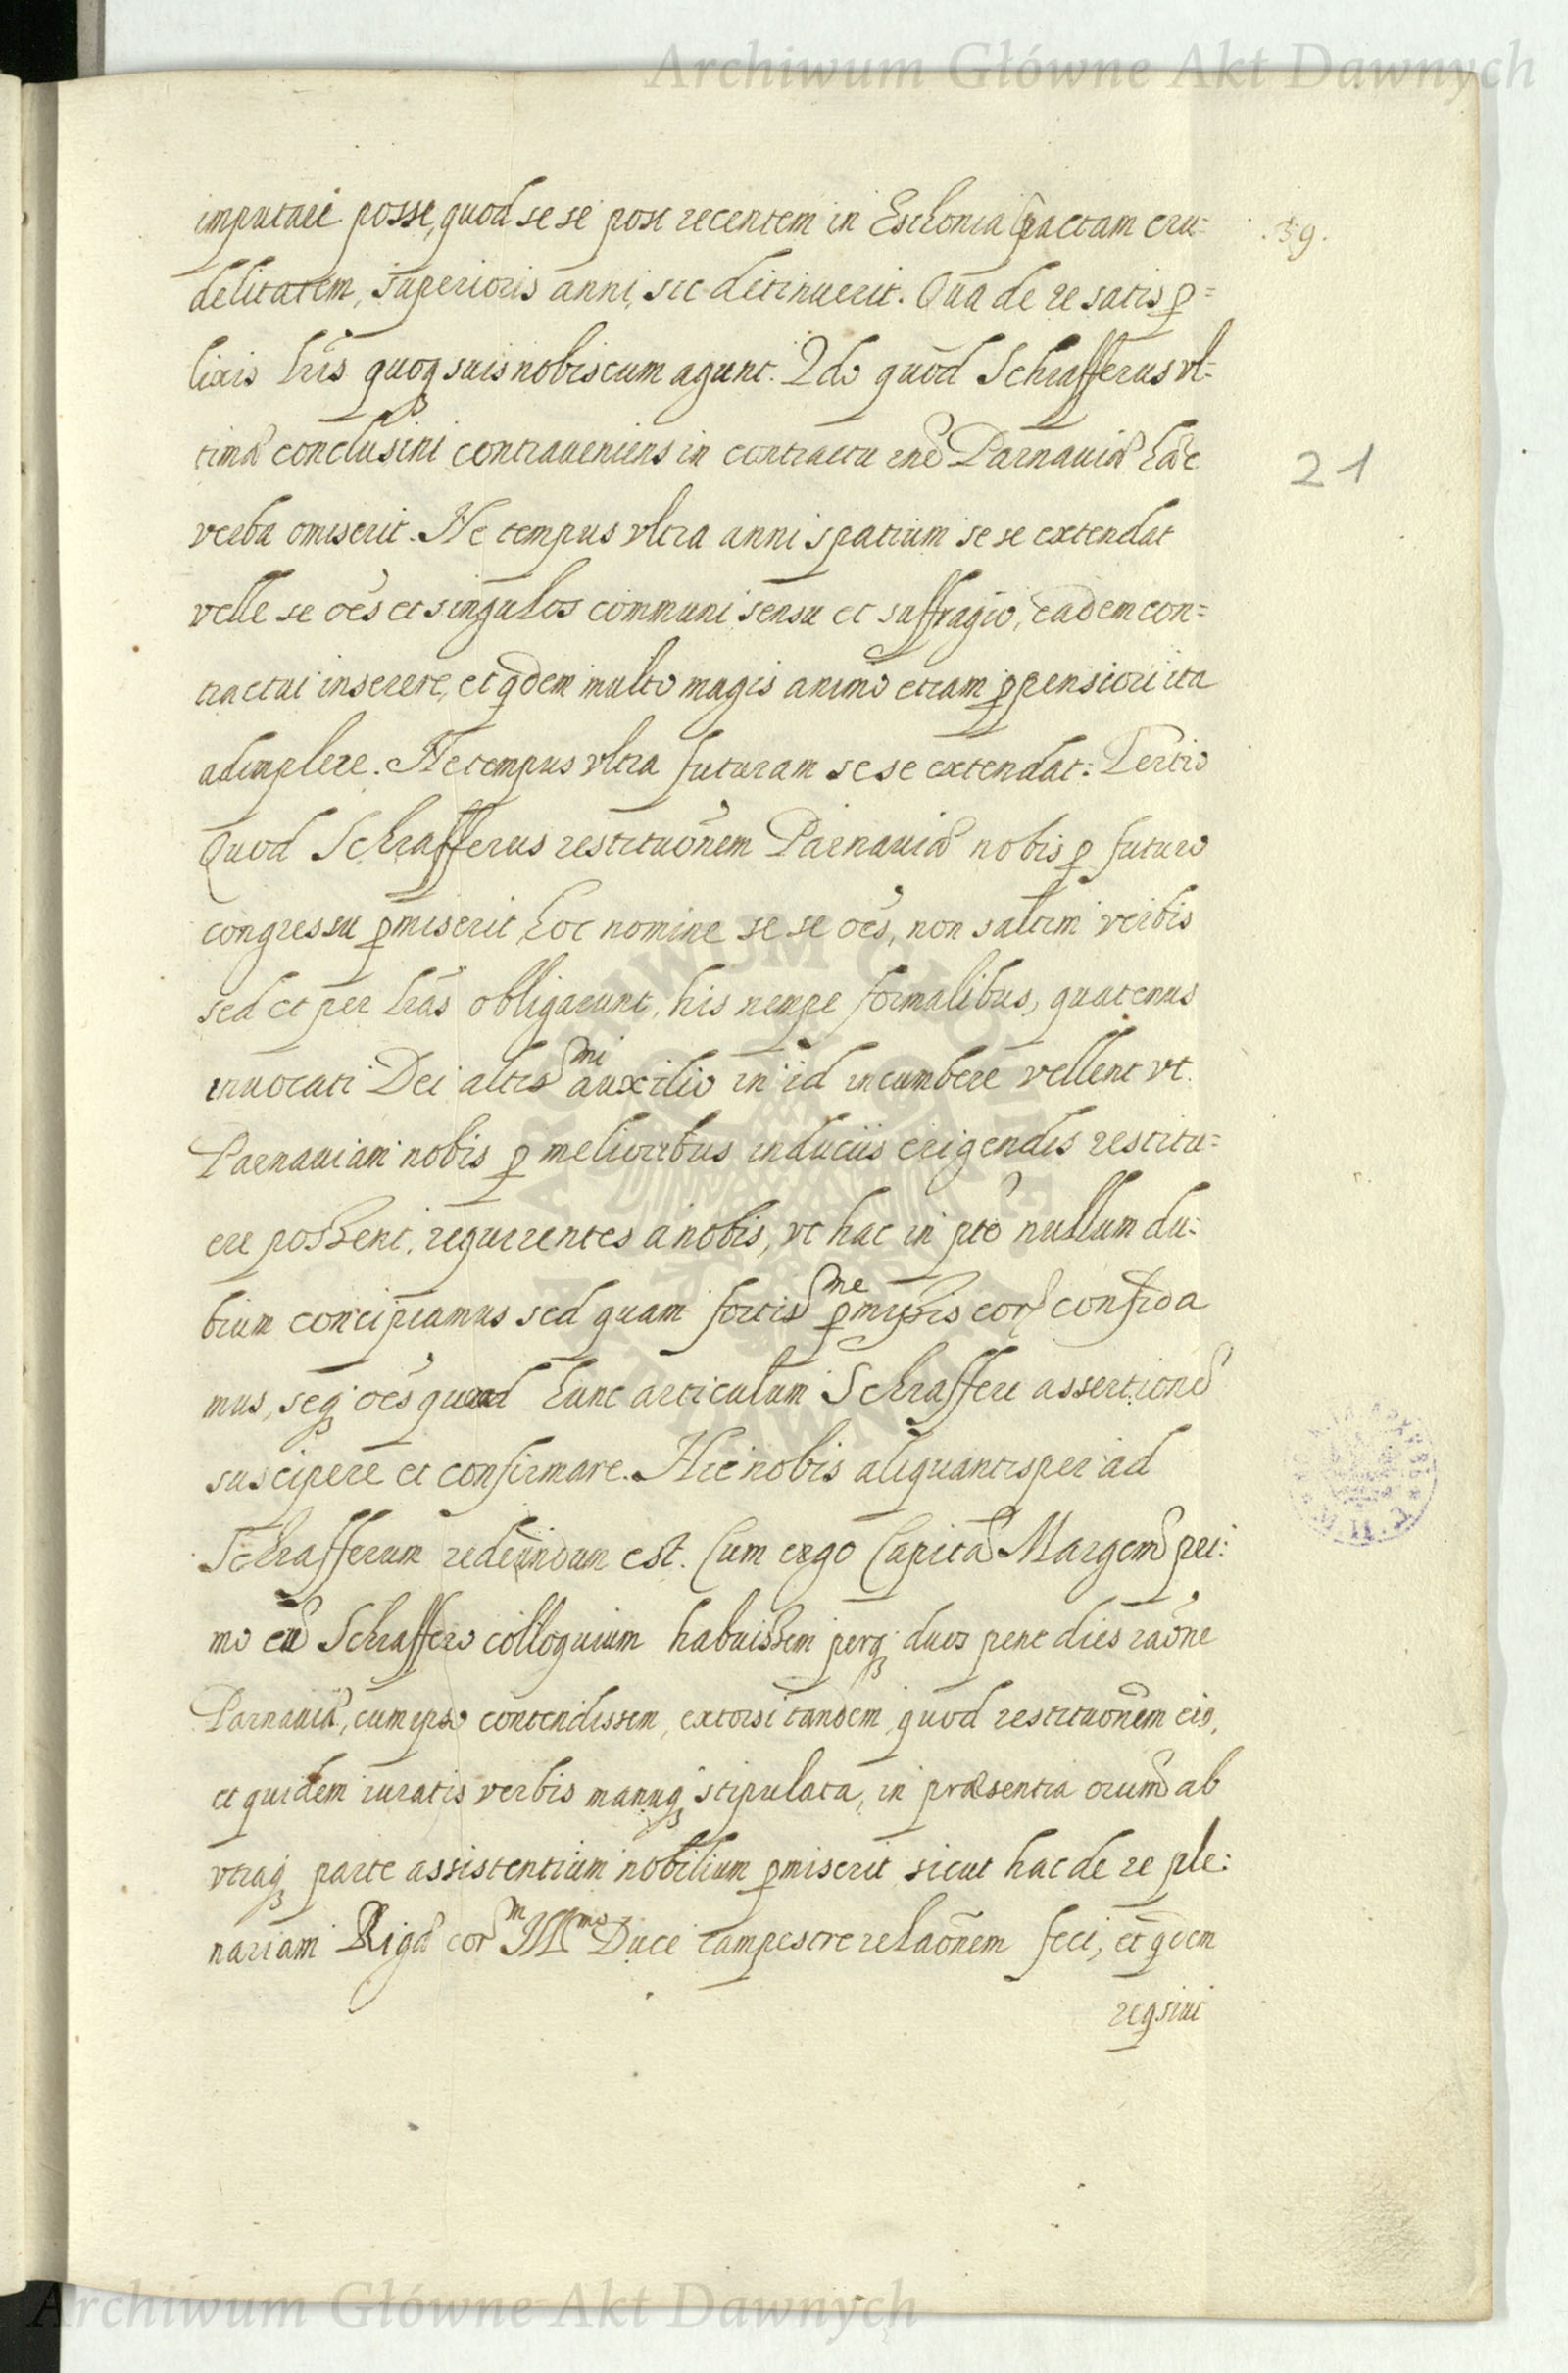 Archiwum Główne Akt Dawnych
imputari posse, quod se se post recentem in Esthonia pactam cru=
.39.
delitatem, superioris anni, sic detinuerit. Qua de re satis p=
lixis lris quoq suis nobiscum agunt. 2do quod Schrafferus vl=
timæ conclusini contraveniens in contractu rnē Parnaviæ hæc
21
verba omiserit. Ne tempus vltra anni spatium se se extendat
velle se oēs et singulos communi sensu et suffragio, eadem con=
tractui inserere, et qdem multo magis animo etiam ppensiori ita
adimplere. Ne tempus vltra futuram se se extendat: Tertio
Quod Schrafferus restituōnem Parnaviæ nobis p futuro
congressu pmiserit, hoc nomine se se oēs, non saltim verbis
sed et per lras obligarunt, his nempe formalibus, quatenus
invocati Dei altissmi auxilio in id incumbere vellent vt
Parnaviam nobis p melioribus induciis erigendis restitu=
ere possent, requirentes a nobis, vt hac in pte nullum du=
bium concipiamus sed quam fortissme pmissis cor confida
mus, seq oēs quoad hunc articulum Schrafferi assertionē
suscipere et confirmare. Hic nobis aliquantisper ad
Schrafferum redeundum est. Cum ergo Capitæ Margemo pri:
mo cū Schraffero colloquium habuissem perq duos pene dies raōne
Parnaviæ, cum ipso contendissem, extorsi tandem, quod restituōnem eis,
et quidem iuratis verbis manuq stipulata, in præsentia orum ab
vtraq parte assistentium nobilium pmiserit sicut hac de re ple:
nariam Rigæ corm Illmo Duce campestre relaōnem feci, et qdem
reqsiui
Archiwum Główne Akt Dawnych